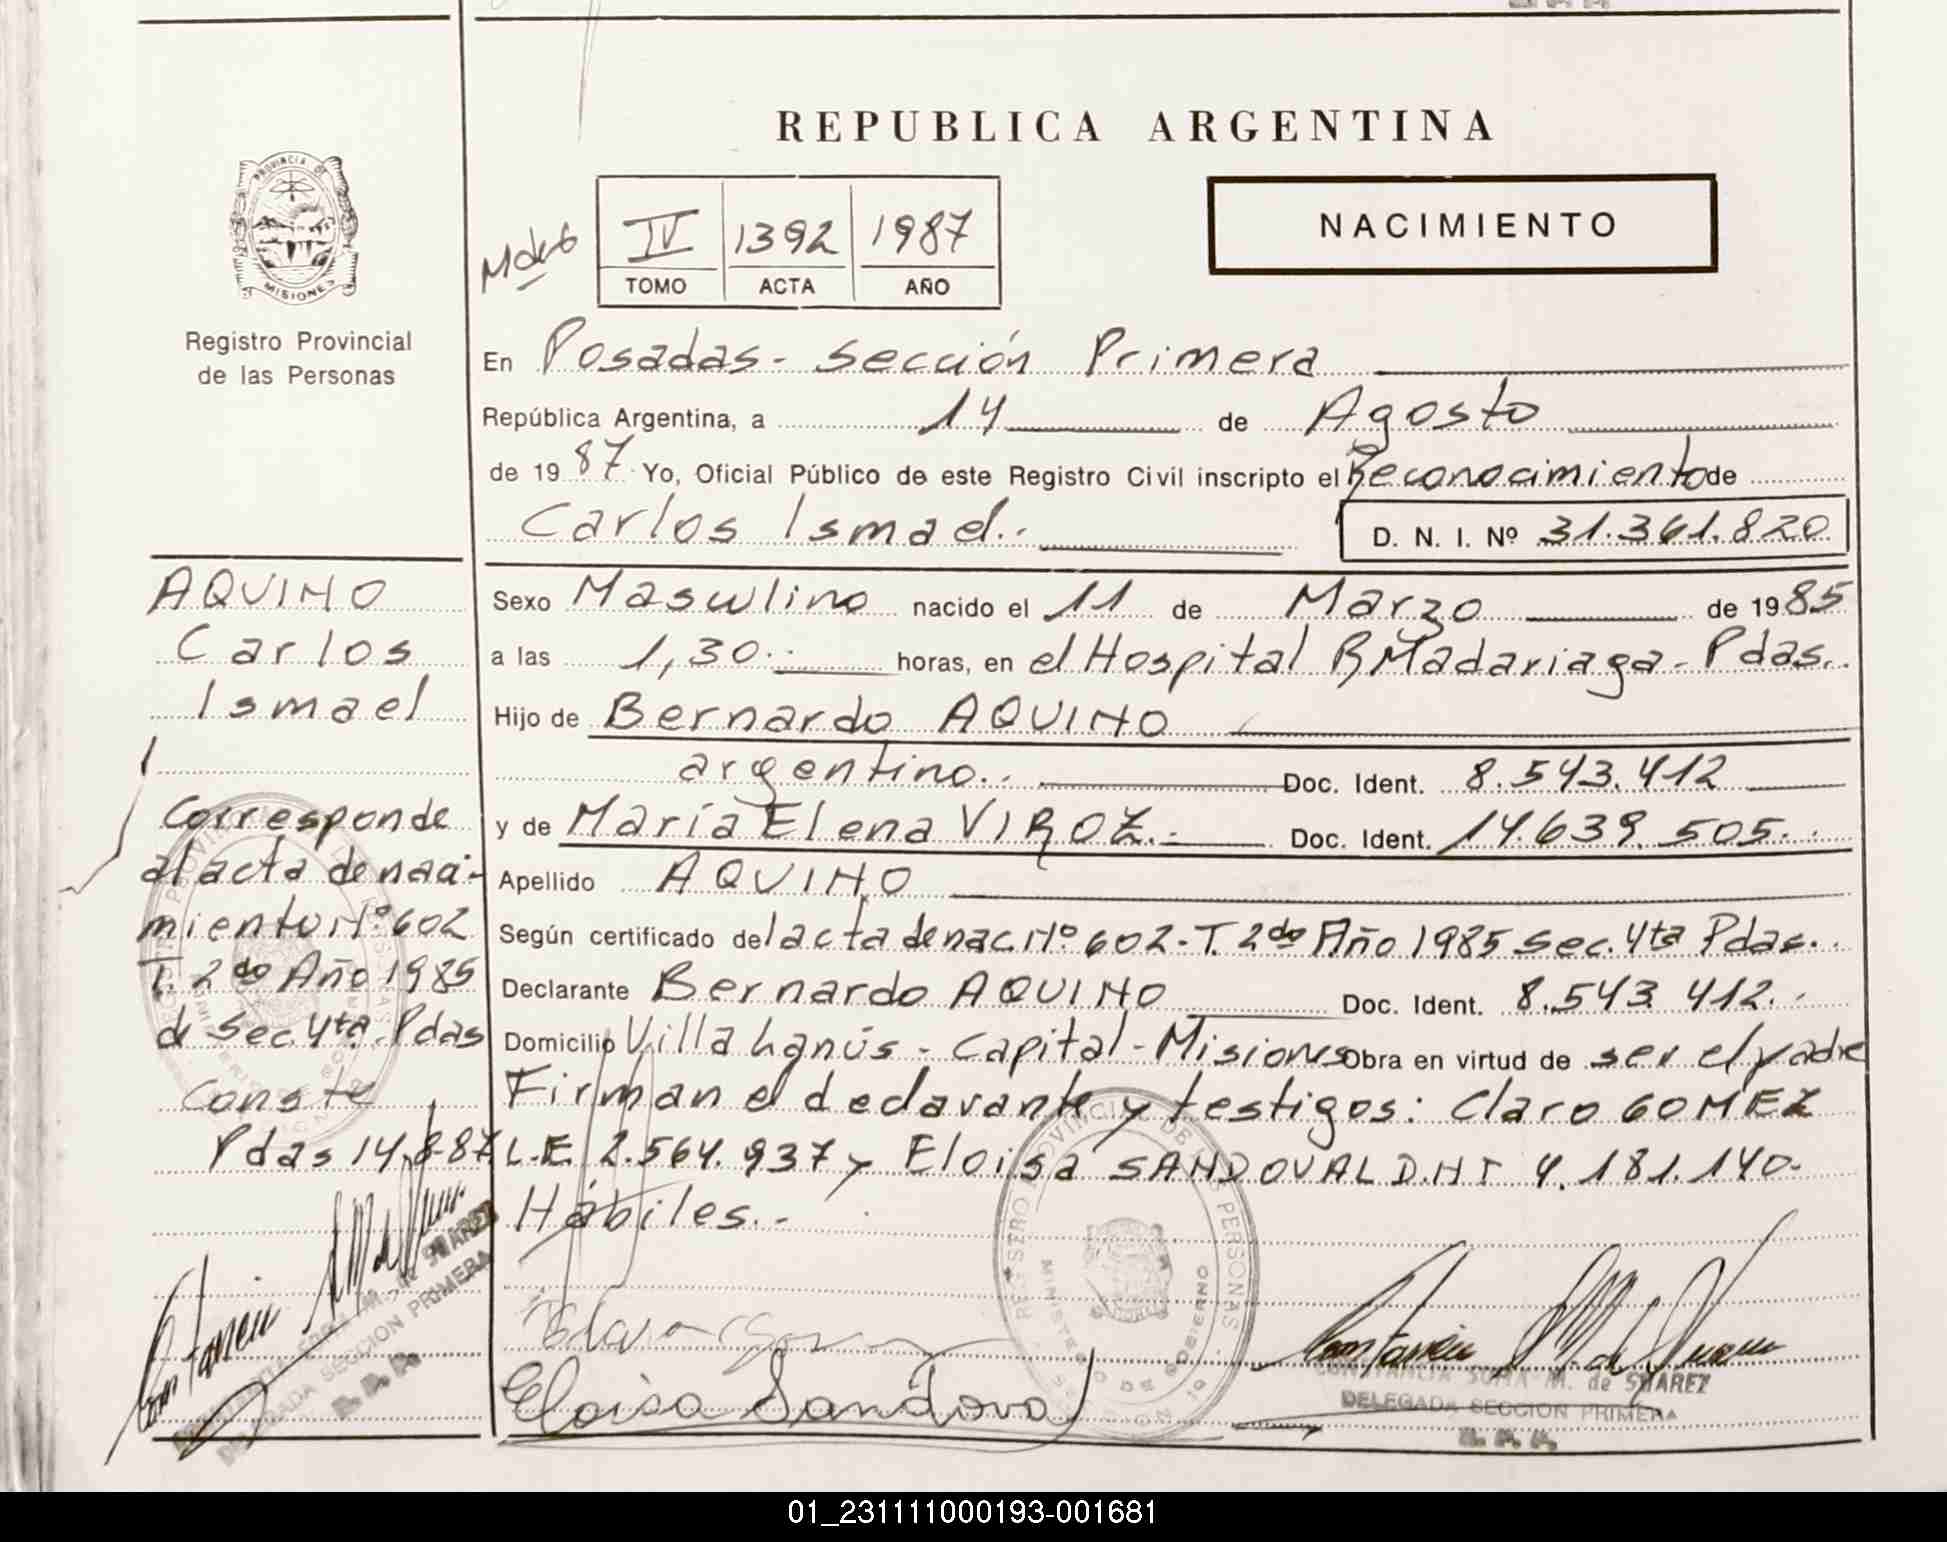 REPUBLICA ARGENTINA
PROVINCIA DE
MISIONES
Registro Provincial
de las Personas
IV 1392 1987
TOMO ACTA AÑO
NACIMIENTO
En Posadas - Sección Primera
República Argentina, a 14 de Agosto
de 1987 Yo, Oficial Público de este Registro Civil inscripto el Reconocimiento de
Carlos Ismael.- D. N. I. Nº 31.361.820
Sexo Masculino nacido el 11 de Marzo de 1985
a las 1,30.- horas, en el Hospital R Madariaga - Pdas.
Hijo de Bernardo AQUINO
argentino.. Doc. Ident. 8.543.412
y de María Elena VIROZ.- Doc. Ident. 14.639.505.-
Apellido AQUINO
Según certificado del acta de nac. Nº 602 - T. 2do Año 1985 Sec. 4ta Pdas.
Declarante Bernardo AQUINO Doc. Ident. 8.543.412.
Domicilio Villa Lanús - Capital - Misiones Obra en virtud de ser el padre
Firman el declarante y testigos: Claro GOMEZ
L.E. 2.564.937 y Eloisa SANDOVAL D.N.I 4.181.140-
Hábiles.-
AQUINO
Carlos
Ismael
Corresponde
al acta de naci-
miento Nº 602
T. 2do Año 1985
de Sec. 4ta Pdas
Conste
Pdas 14-8-87
Eloisa Sandoval
M. de SUAREZ
DELEGADA SECCION PRIMERA
CONSTANCIA M. de SUAREZ
DELEGADA SECCION PRIMERA
REGISTRO PROVINCIAL DE LAS PERSONAS
MINISTERIO DE GOBIERNO
01_231111000193-001681